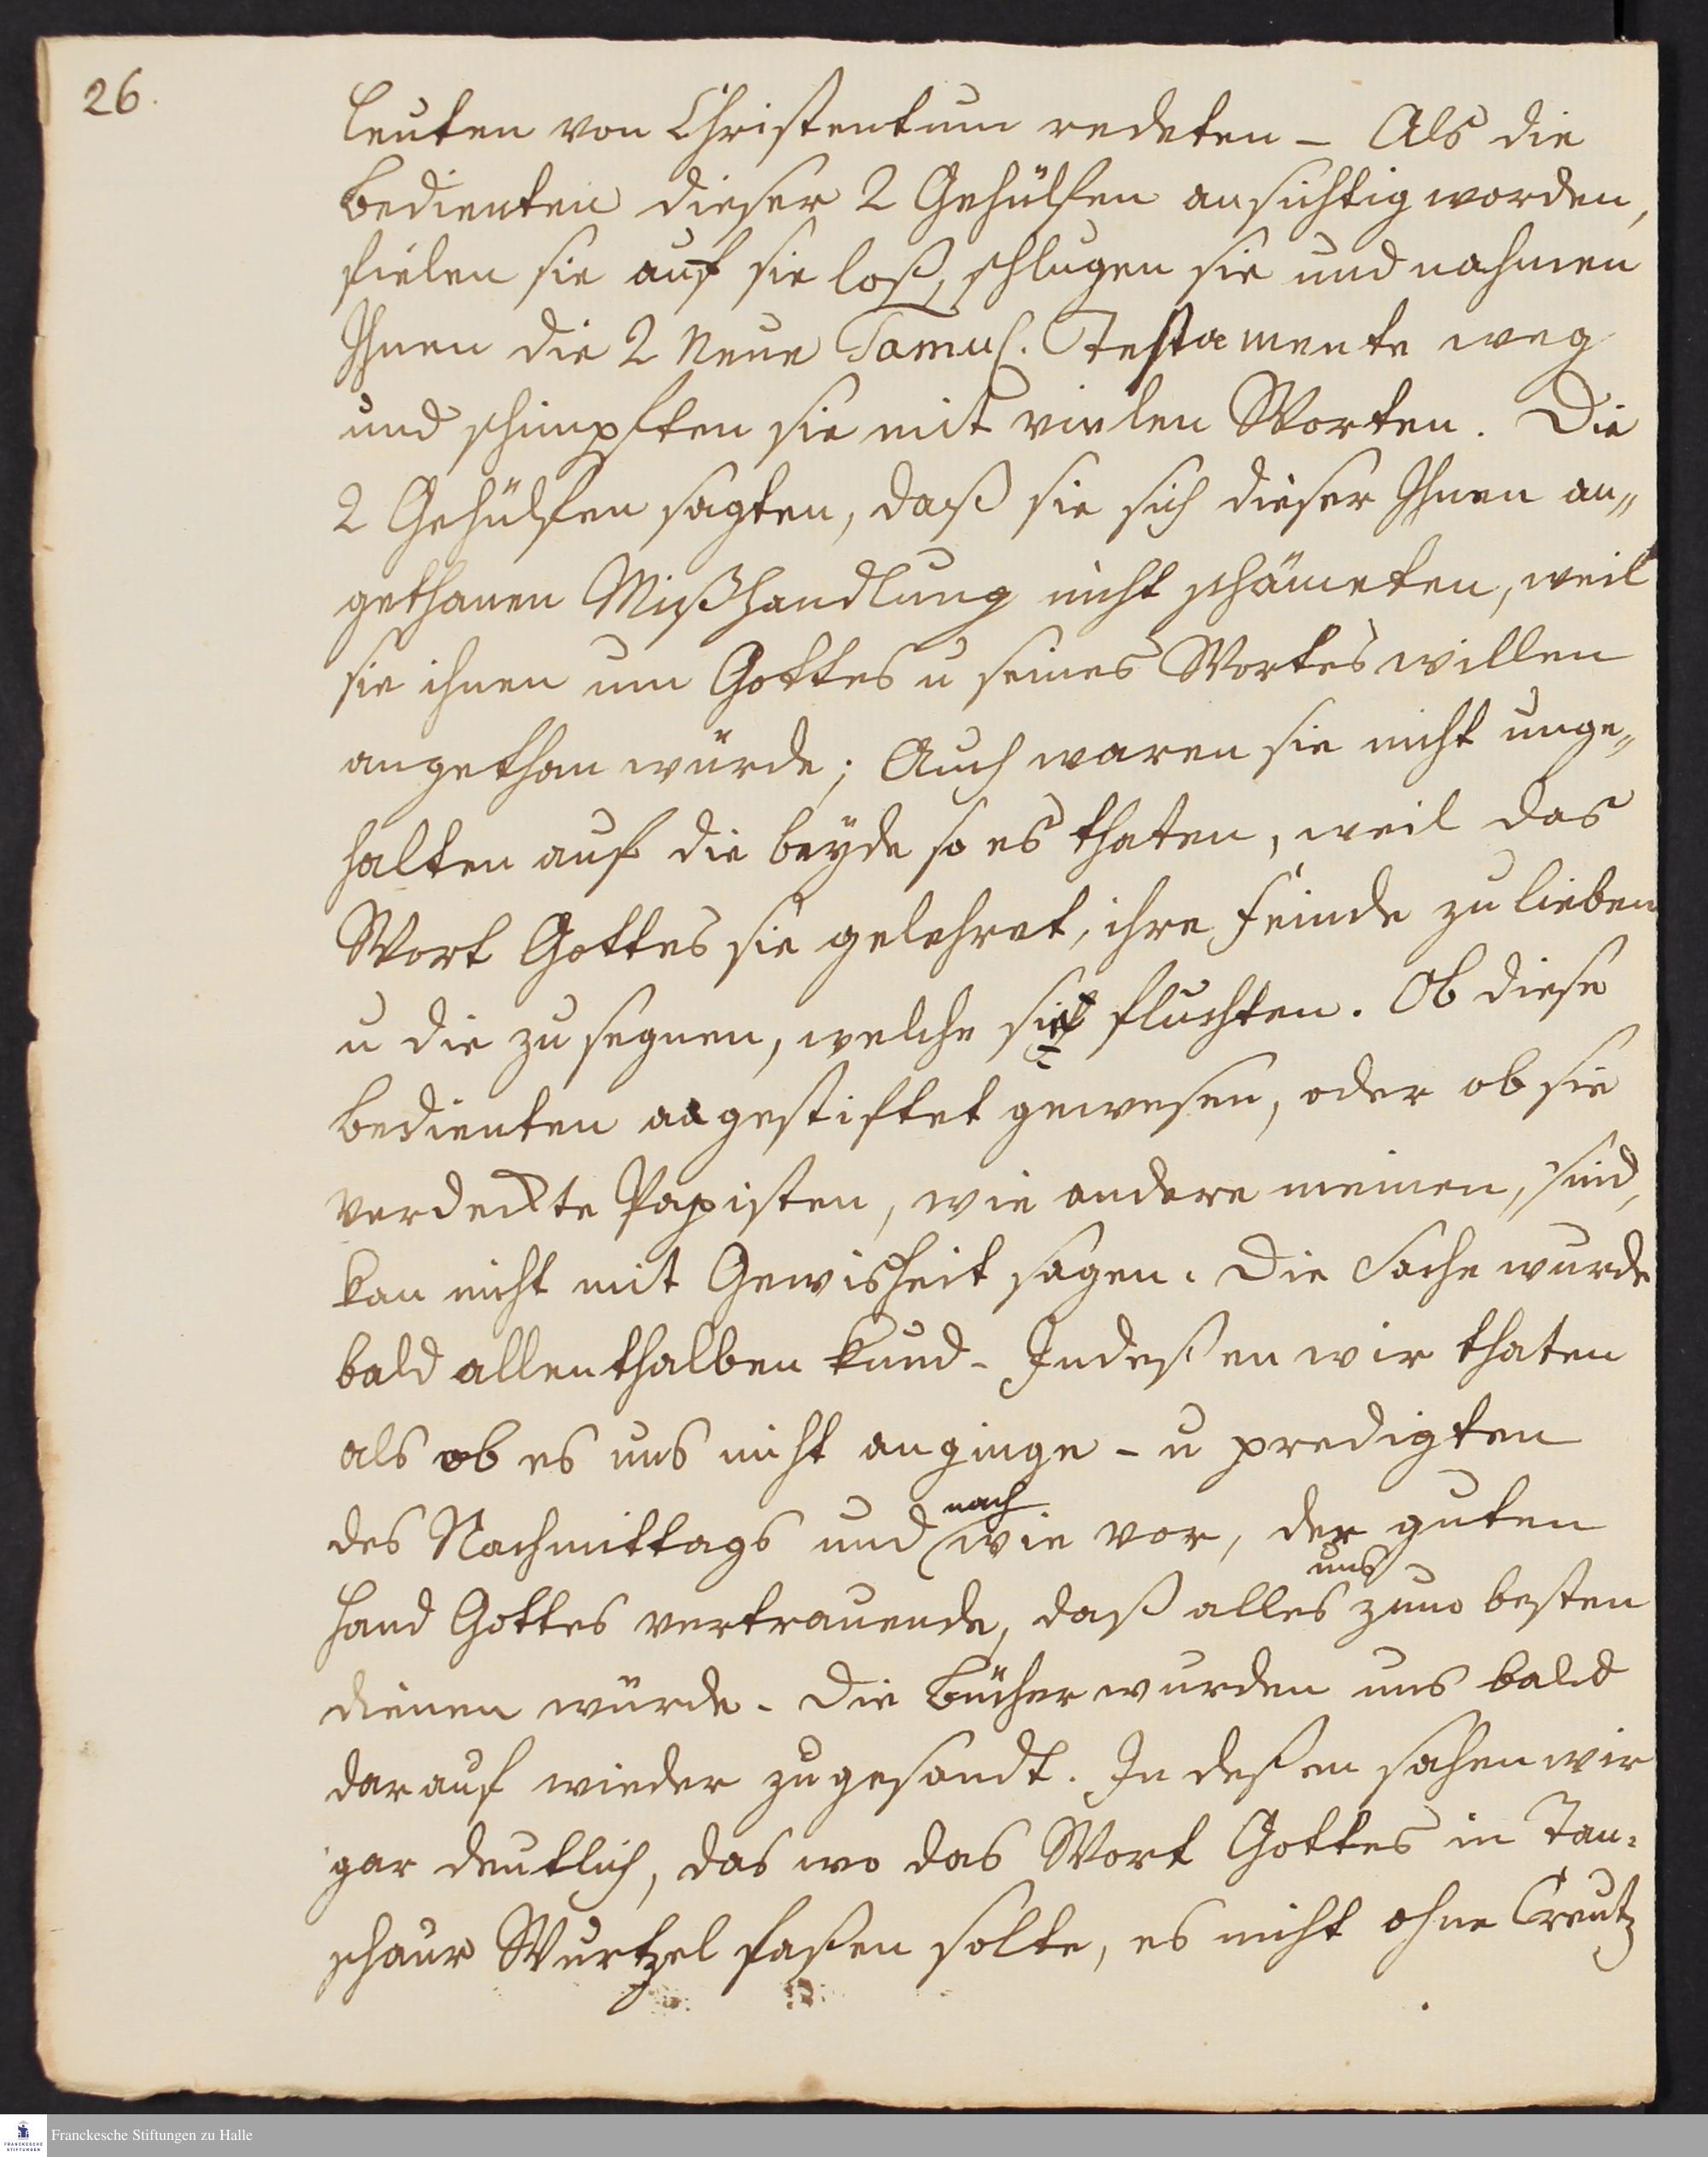 26.
Leuten von Christentum redeten – Als die
Bedienten dieser 2 Gehülfen ansichtig worden,
fielen sie auf sie loß, schlugen sie und nahmen
Ihnen die 2 Neue Tamul. Testamente weg
und schimpften sie mit vielen Worten. Die
2 Gehülfen sagten, daß sie sich dieser Ihnen an„
gethanen Mißhandlung nicht schämeten, weil
sie ihnen um Gottes u seines Wortes willen
angethan würde; Auch waren sie nicht unge„
halten auf die beyde so es thaten, weil das
Wort Gottes sie gelehret, ihre Feinde zu lieben
u die zu segnen, welche sie fluchten. Ob diese
Bedienten angestiftet gewesen, oder ob sie
verdeckte Papisten, wie andere meinen, sind,
kan nicht mit Gewisheit sagen. Die Sache wurde
bald allenthalben kund – Indeßen wir thaten
als ob es uns nicht anginge – u predigten
des Nachmittags und nach wie vor, der guten
Hand Gottes vertrauende, daß alles uns zum besten
dienen würde. Die Bücher wurden uns bald
darauf wieder zugesandt. Indeßen sahen wir
gar deutlich, das wo das Wort Gottes in Tan=
schaur Wurtzel faßen solte, es nicht ohne Creutz
Franckesche Stiftungen zu Halle